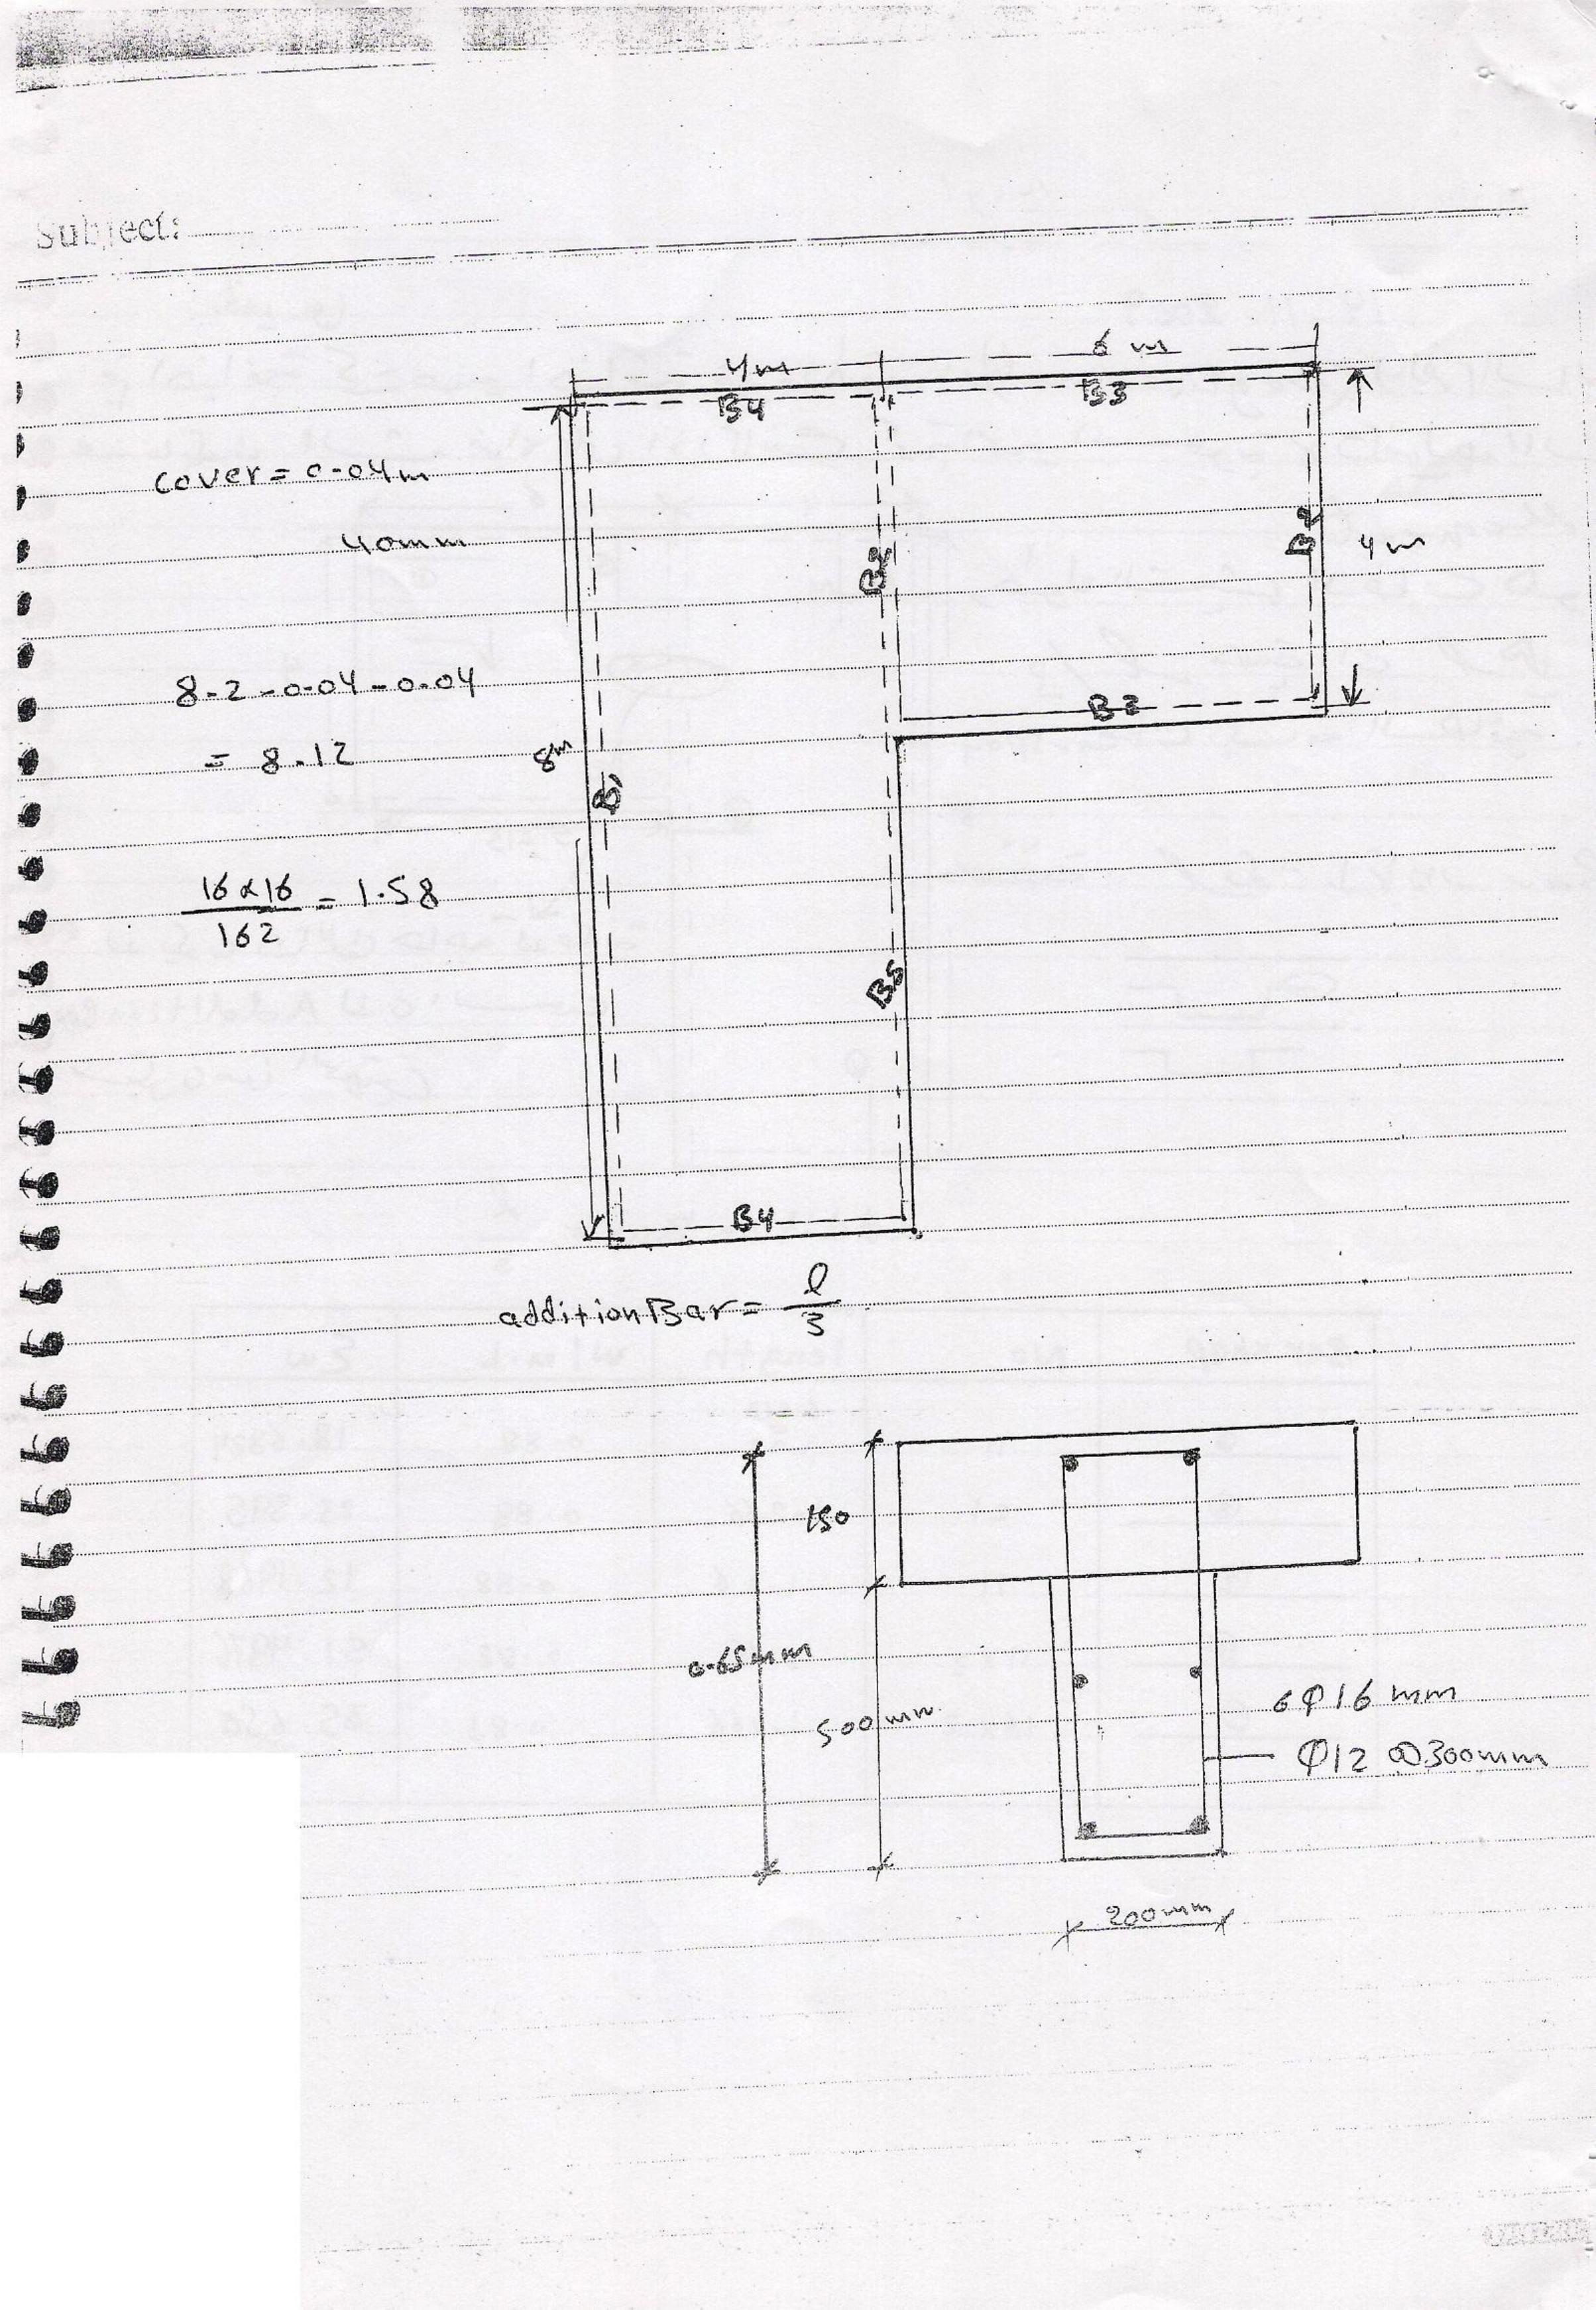 Subject:
4m
6 m
B4
B3
cover = 0.04m
40mm
B2
B2
4m
8.2 - 0.04 - 0.04
B3
= 8.12
8m
B1
16 x 16
162
= 1.58
B5
B4
addition Bar = l
3
150
0.65mm
500mm
6 Φ 16 mm
Φ12 @300mm
200mm